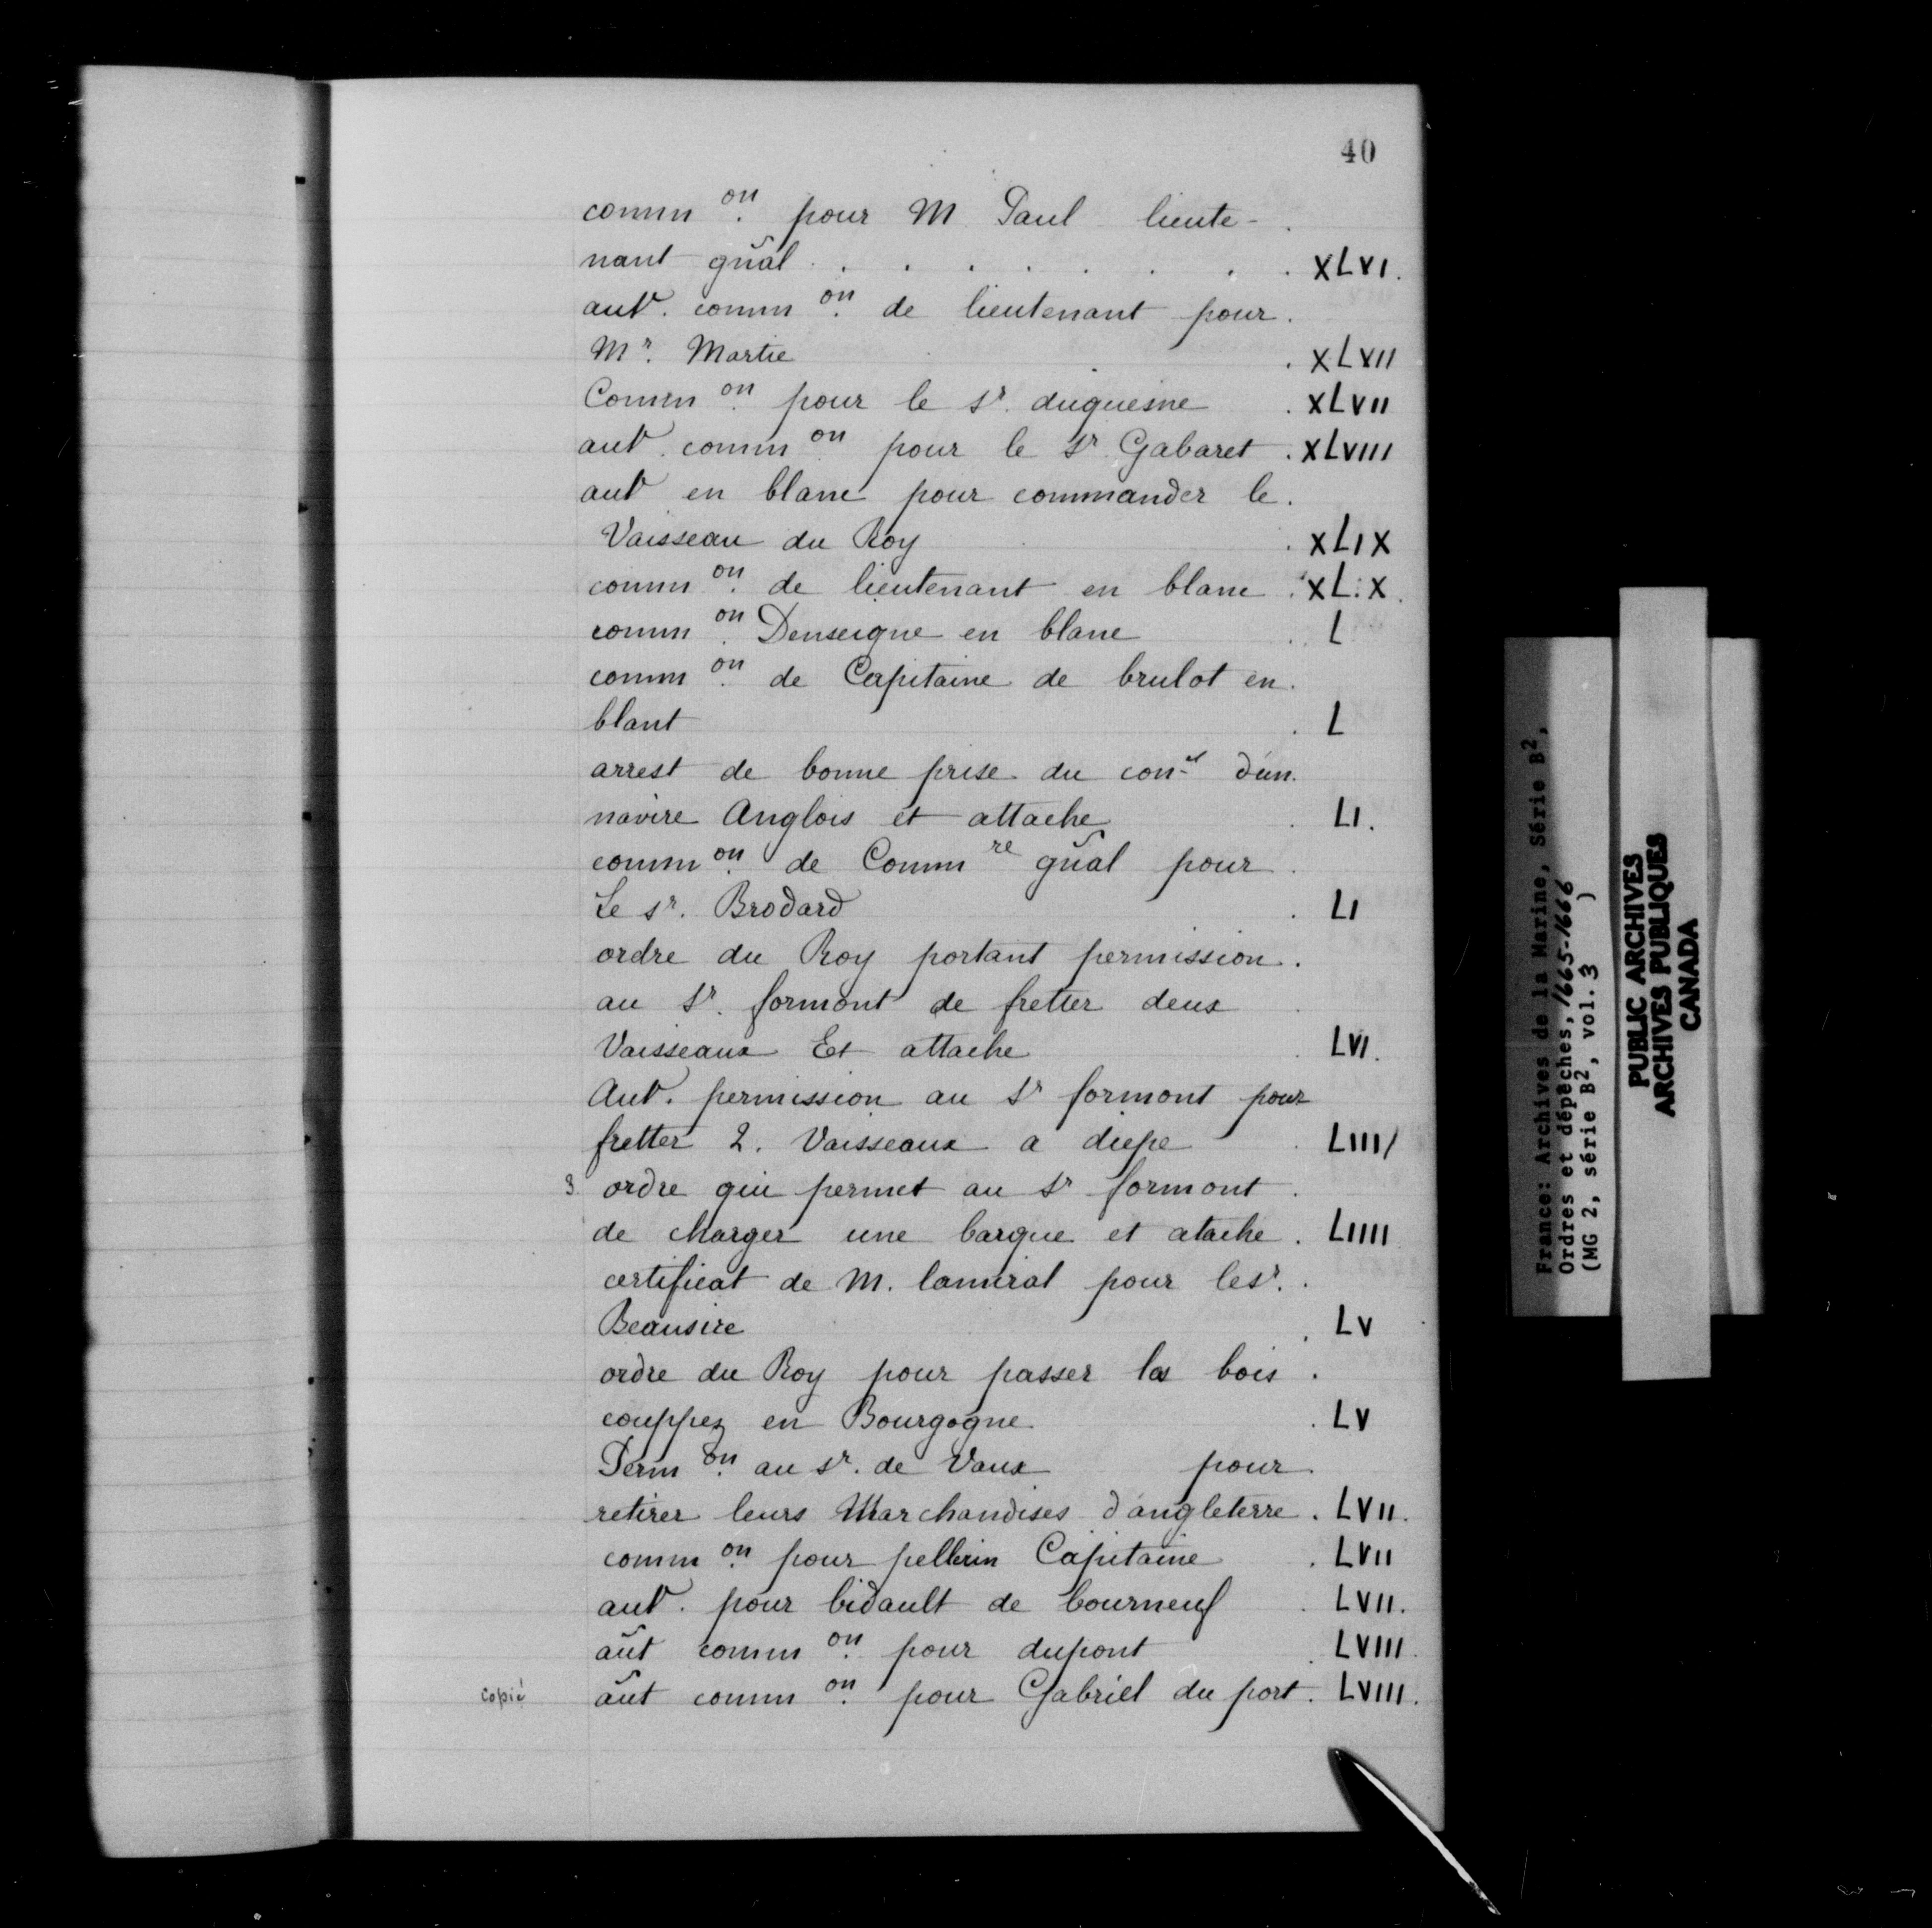 40
comm on. pour M Paul lieute-
nant gũal . . . . . . . . XLVI.
aut. comm on. de lieutenant pour.
Mr. Martie . XLVII
Comm on. pour le sr. duquesne . XLVII
aut. comm on. pour le sr. Gabaret . XLVIII
aut en blanc pour commander le.
Vaisseau du Roy . XLIX
comm on. de lieutenant en blanc . XLIX.
comm on. Denseigne en blanc . L
comm on. de Capitaine de brulot en.
blant . L
arrest de bonne prise du conel d'un.
navire Anglois et attache . LI.
comm on. de Comm re gũal pour .
Le sr. Brodard . LI
ordre du Roy portant permission.
au sr. formont de fretter deux .
Vaisseaux Et attache . LVI.
Aut. permission au sr formont pour
fretter 2. Vaisseaux a diepe . LIIII
3. ordre qui permet au sr formont .
de charger une barque et atache . LIIII
certificat de M. lamiral pour lesr. .
Beausire . LV
ordre du Roy pour passer les bois .
couppez en Bourgogne . LV
Perm on. au sr. de Vaux pour.
retirer leurs Marchandises d'angleterre . LVII.
comm on. pour pellerin Capitaine . LVII
aut. pour bidault de bourneuf . LVII.
aũt comm on. pour dupont . LVIII.
copié aũt comm on. pour Gabriel du port . LVIII.
France: Archives de la Marine, Série B2,
Ordres et dépêches, 1665-1666
(MG 2, série B2, vol. 3 )
PUBLIC ARCHIVES
ARCHIVES PUBLIQUES
CANADA